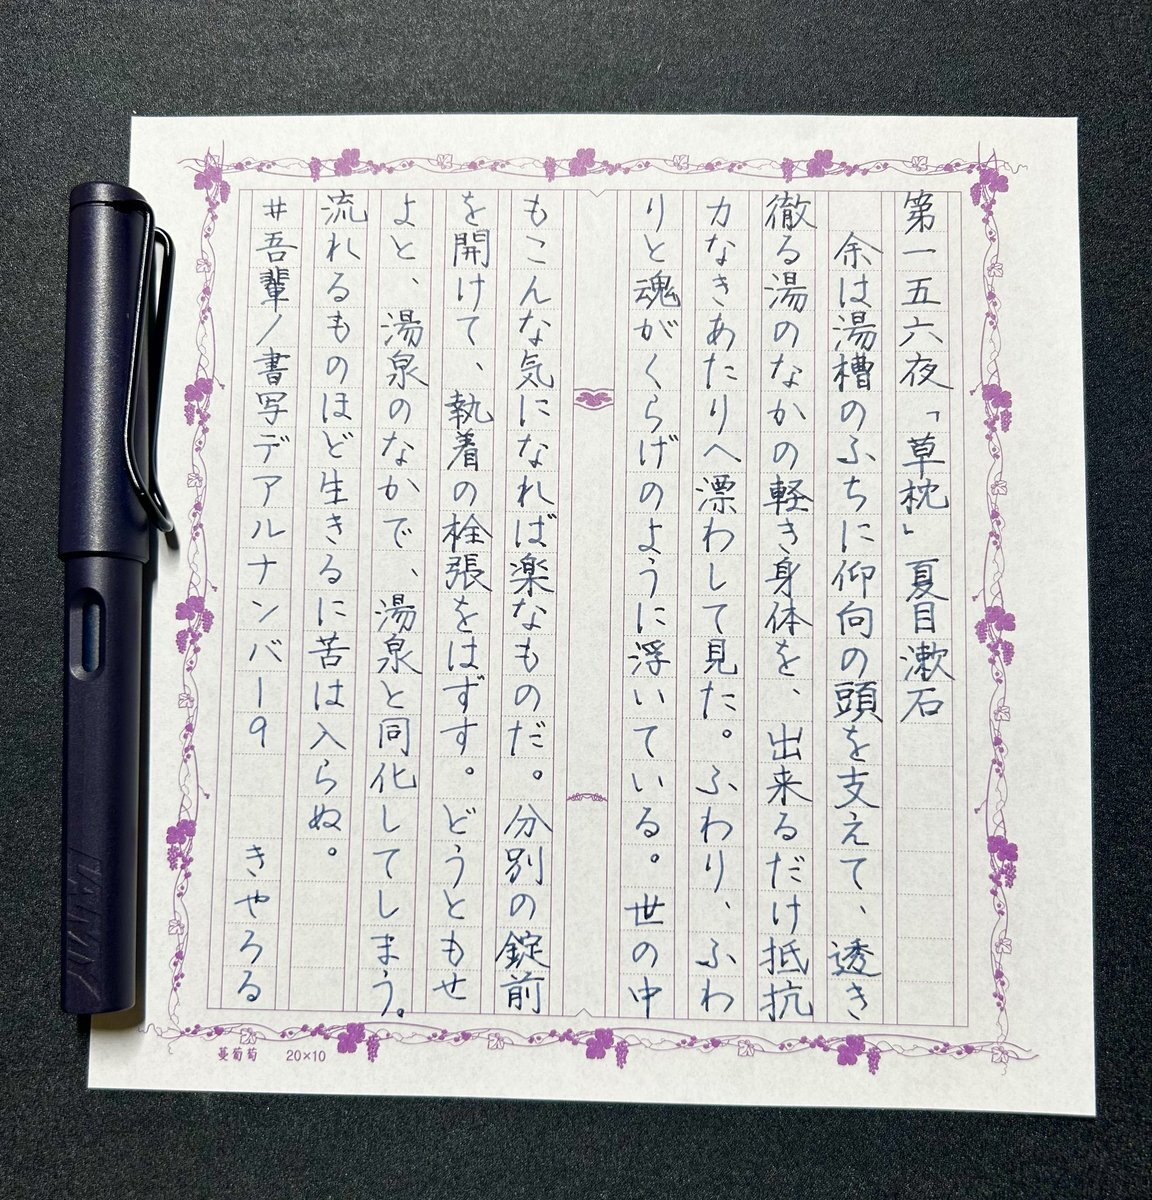 第一五六夜「草枕」夏目漱石
余は湯槽のふちに仰向の頭を支えて、透き
徹る湯のなかの軽き身体を、出来るだけ抵抗
力なきあたりへ漂わして見た。ふわり、ふわ
りと魂がくらげのように浮いている。世の中
もこんな気になれば楽なものだ。分別の錠前
を開けて、執着の栓張をはずす。どうともせ
よと、湯泉のなかで、湯泉と同化してしまう。
流れるものほど生きるに苦は入らぬ。
#吾輩ノ書写デアルナンバー9 きやろる
蔓葡萄 20×10
LAMY